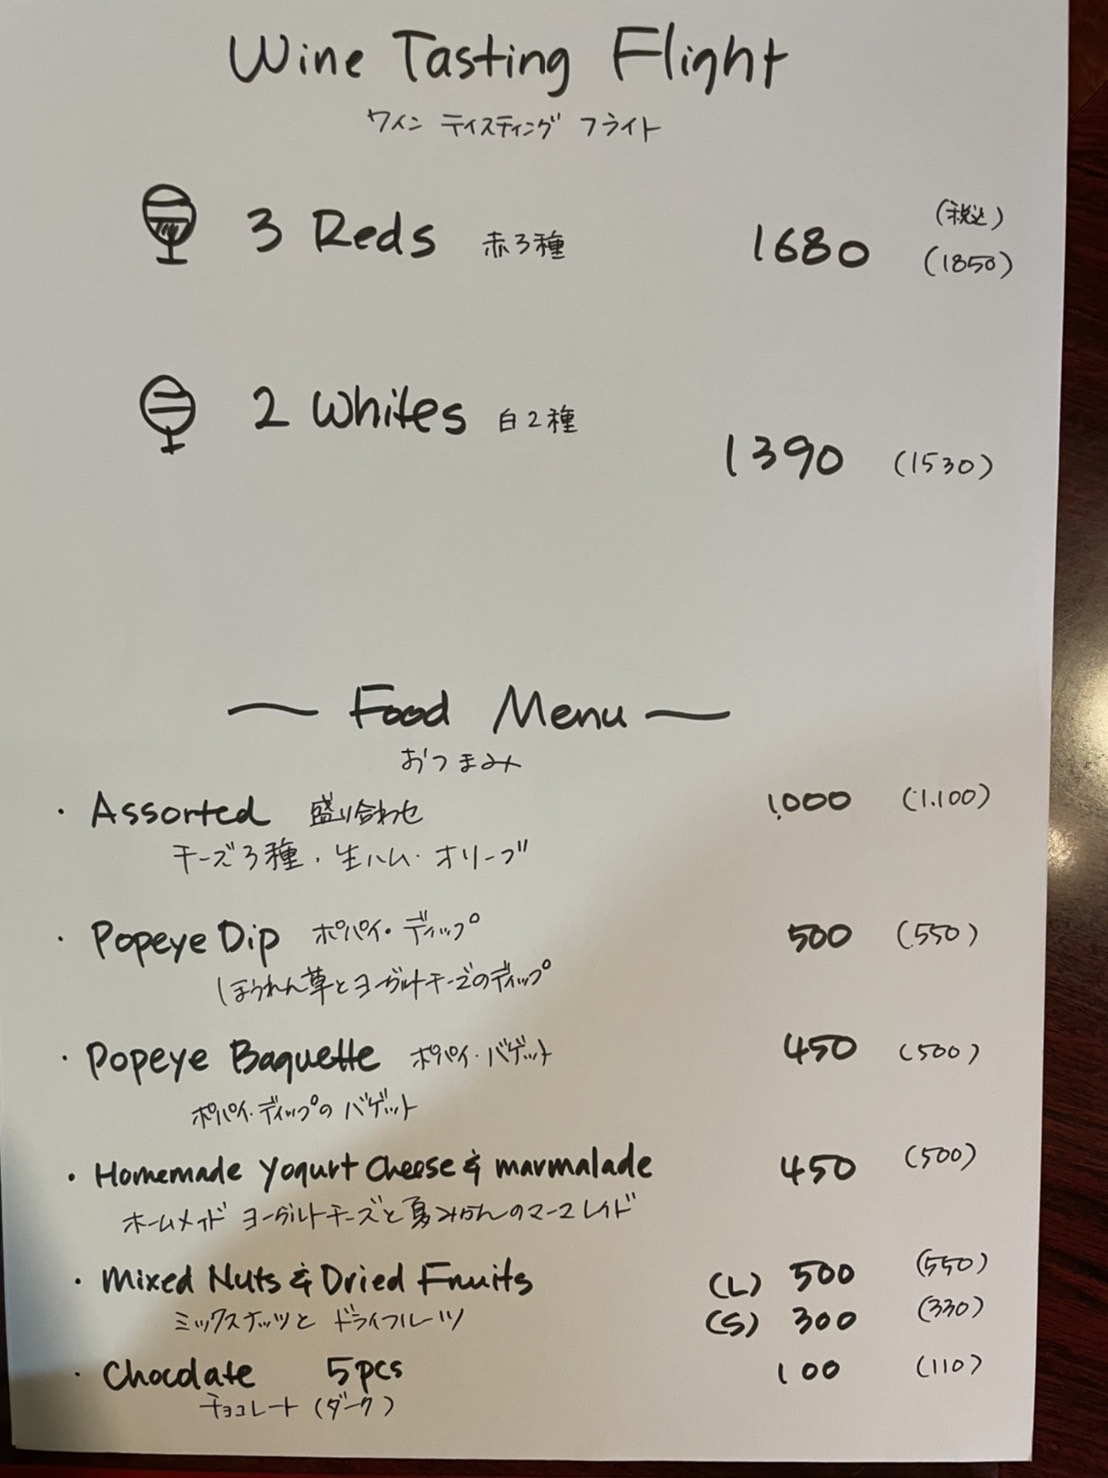 Wine Tasting Flight
ワイン テイスティング フライト
(税込)
3 Reds 赤3種 1680 (1850)
2 Whites 白2種 1390 (1530)
Food Menu
おつまみ
・Assorted 盛り合わせ 1,000 (1,100)
チーズ3種・生ハム・オリーブ
・Popeye Dip ポパイ・ディップ 500 (550)
ほうれん草とヨーグルトチーズのディップ
・Popeye Baguette ポパイ・バゲット 450 (500)
ポパイ・ディップの バゲット
・Homemade Yogurt Cheese & marmalade 450 (500)
ホームメイド ヨーグルトチーズと夏みかんのマーマレイド
・Mixed Nuts & Dried Fruits (L) 500 (550)
ミックスナッツと ドライフルーツ (S) 300 (330)
・Chocolate 5pcs 100 (110)
チョコレート (ダーク)